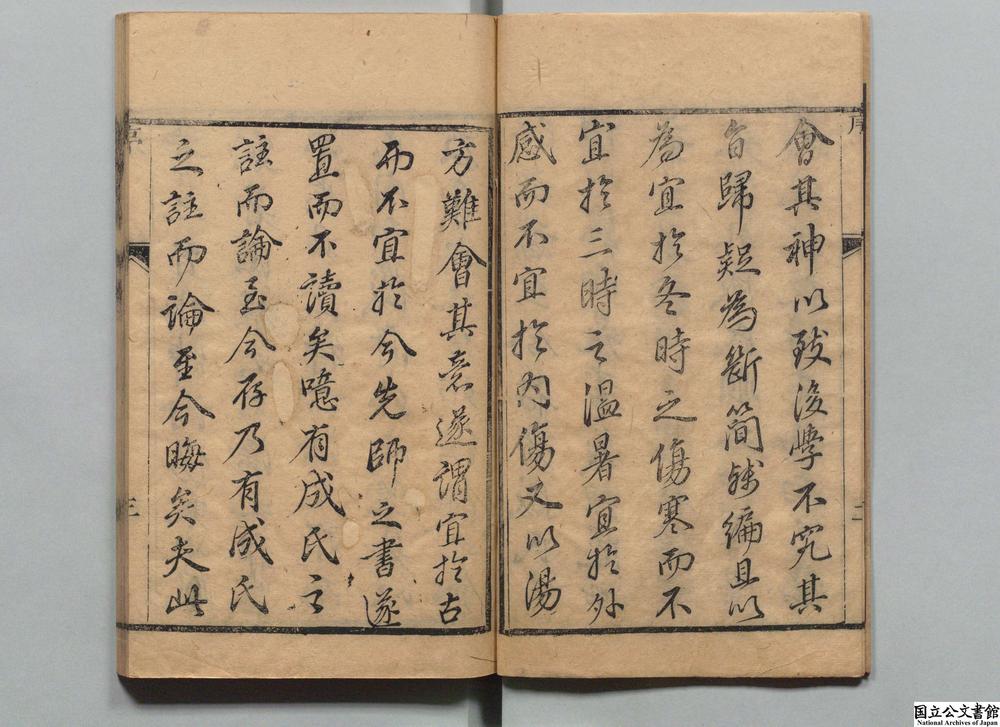 會其神以致後學不究其
旨歸疑為斷簡殘編且以
為宜於冬時之傷寒而不
宜於三時之溫暑宜於外
感而不宜於內傷又以湯
方難會其意遂謂宜於古
而不宜於今先師之書遂
置而不讀矣噫有成氏之
註而論至今存乃有成氏
之註而論至今晦矣夫此
序
二
序
三
国立公文書館
National Archives of Japan